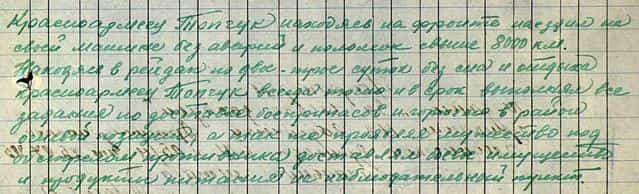 Красноармеец Топчук находясь на фронте наездил на
своей машине без аварий и поломок свыше 8000 км.
Находясь в рейдах по двое-трое суток без сна и отдыха
красноармеец Топчук всегда точно и в срок выполнял все
задания по доставке боеприпасов и горючего в район
огневых позиций, а так же проявляя мужество под
обстрелом противника доставлял боевое имущество
и продукты питания на наблюдательный пункт.